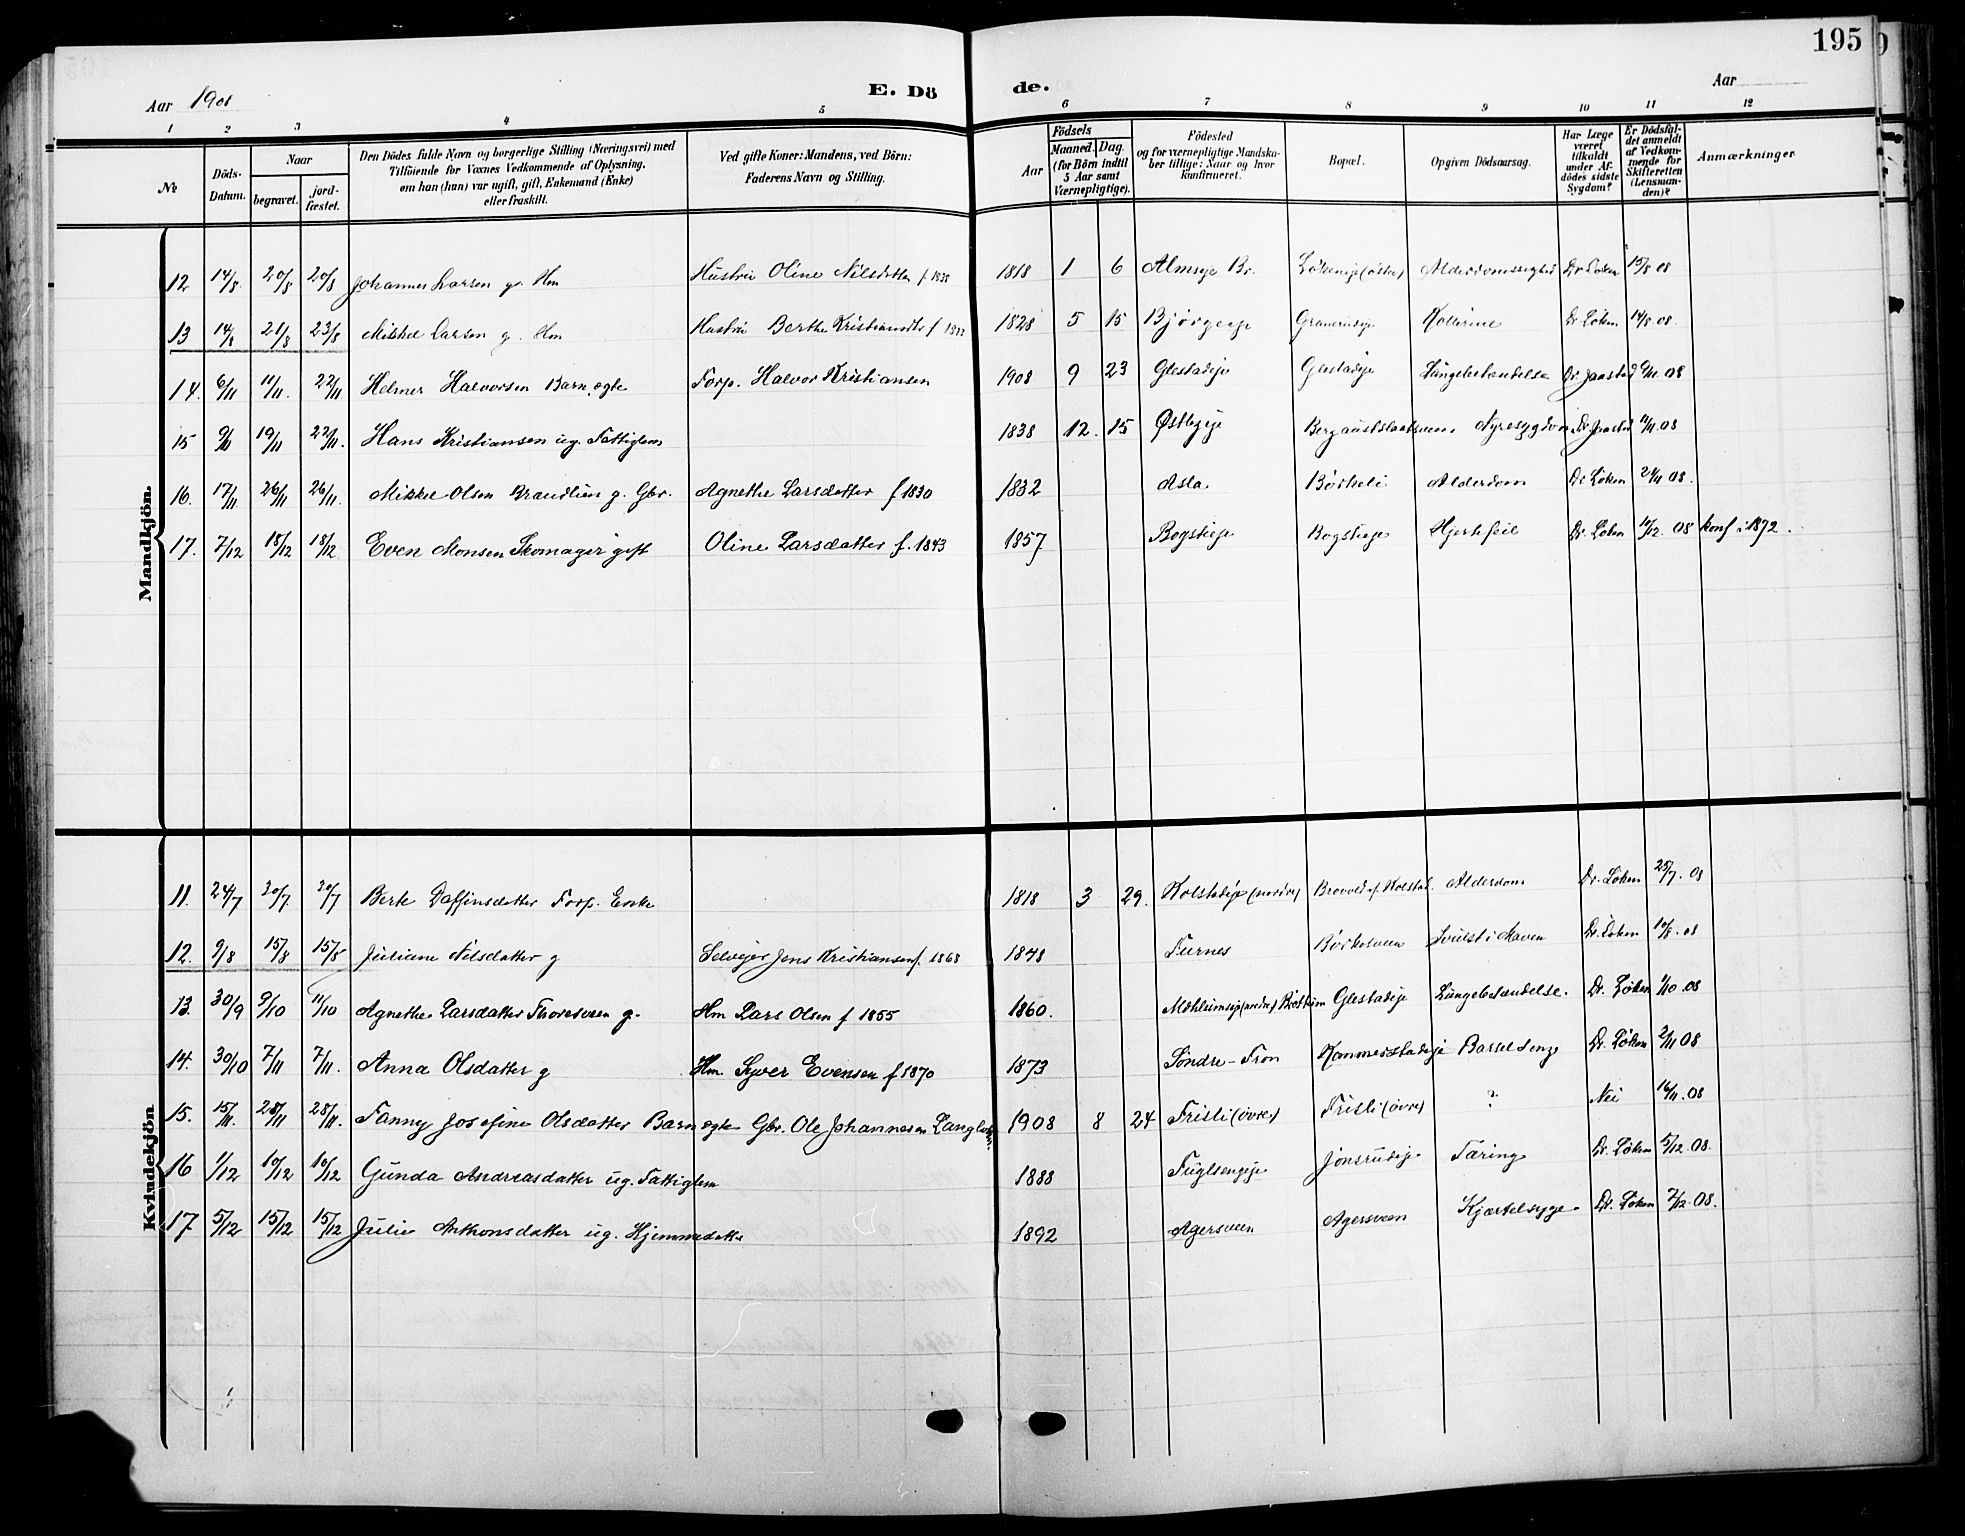 195
Aar 1908
E. Dö
de.
Aar
1 2 3 4 5 6 7 8 9 10 11 12
No
Döds-Datum.
Naar
begravet.
jord-fæstet.
Den Dödes fulde Navn og borgerlige Stilling (Næringsvei) med
Tilföiende for Voxnes Vedkommende af Oplysning,
om han (hun) var ugift, gift, Enkemand (Enke)
eller fraskilt.
Ved gifte Koner: Mandens, ved Börn:
Faderens Navn og Stilling.
Födsels
Aar
Maaned. Dag.
(for Börn indtil
5 Aar samt
Værnepligtige).
Födested
og for værnepligtige Mandska-
ber tillige: Naar og hvor
konfirmeret.
Bopæl.
Opgiven Dödsaarsag.
Har Læge
været
tilkaldt
under Af-
dödes sidste
Sygdom?
Er Dödsfal-
det anmeldt
af Vedkom-
mende for
Skifteretten
(Lensman-
den)?
Anmærkninger
Mandkjön.
12 14/8 20/8 20/8 Johannes Larsen g. Hm Hustru Oline Nilsdatter f 1818 1 6 Almeje Br. Alderdomssvaghed Dr Løken 15/8 08
13 14/8 21/8 23/8 Mikkel Larsen g. Hm Hustru Berthe f 1828 5 15 Bjørgeeje Dr Løken 14/8 08.
14. 6/11 11/11. 22/11 Helmer Halvorsen Barn, ægte Forp. Halvor Kristiansen 1908 9 23 Glestadeje Glestadeje Lungebetændelse Dr. Jaastad 9/11. 08
15 9/11 19/11 22/11. Hans Kristiansen ug. Fattiglem 1838 12. 15 Østbyeje Nyresygdom Dr Jaastad 11/11. 08
16. 17/11 26/11 26/11. Mikkel Olsen Brandlien g. Gbr. Agnethe Larsdatter f 1830 1832 Asta Børkeli Alderdom Dr Løken 24/11 08.
17. 7/12 18/12 18/12 Even Monsen Skomager gift Oline Larsdatter f. 1843 1857 Bogstieje Bogstieje Hjertefeil Dr. Løken 10/12. 08 konf. i 1872.
Kvindekjön
11. 24/7 30/7 30/7 Berte Daffinsdatter Forp. Enke 1818 3 29. Kolstadeje (nordre) Brovold af Kolstad. Alderdom Dr. Løken 25/7. 08
12. 9/8 15/8 15/8 Juliane Nilsdatter g Selvejer Jens Kristiansen f. 1868 1848 Furnes Børkesveen Svulst i Maven Dr. Løken 10/8. 08
13. 30/9 9/10 11/10 Agnethe Larsdatter Thoresveen g. Hm Lars Olsen f 1855 1860. Glestadeje Lungebetændelse. Dr. Løken 1/10. 08
14. 30/10 7/11 7/11. Anna Olsdatter g Hm. Syver Evensen f 1870 1873 Søndre-Fron Kammerstadeje Barselseng Dr. Løken 2/11 08
15. 15/11. 28/11 28/11. Fanny Josefine Olsdatter Barn ægte Gbr. Ole Johannesen 1908 8 24 Frisli (øvre) Frisli (øvre) ? Nei 16/11. 08
16 1/12 10/12 10/12 Gunda Andreasdatter ug. Fattiglem 1888 Fuglsengeje Jonsrudeje Tæring Dr. Løken 5/12. 08.
17 5/12 15/12 15/12 Julie Antonsdatter ug. Hjemmedatter 1892 Agersveen Agersveen Kjærtelsyge. Dr. Løken 7/12. 08.